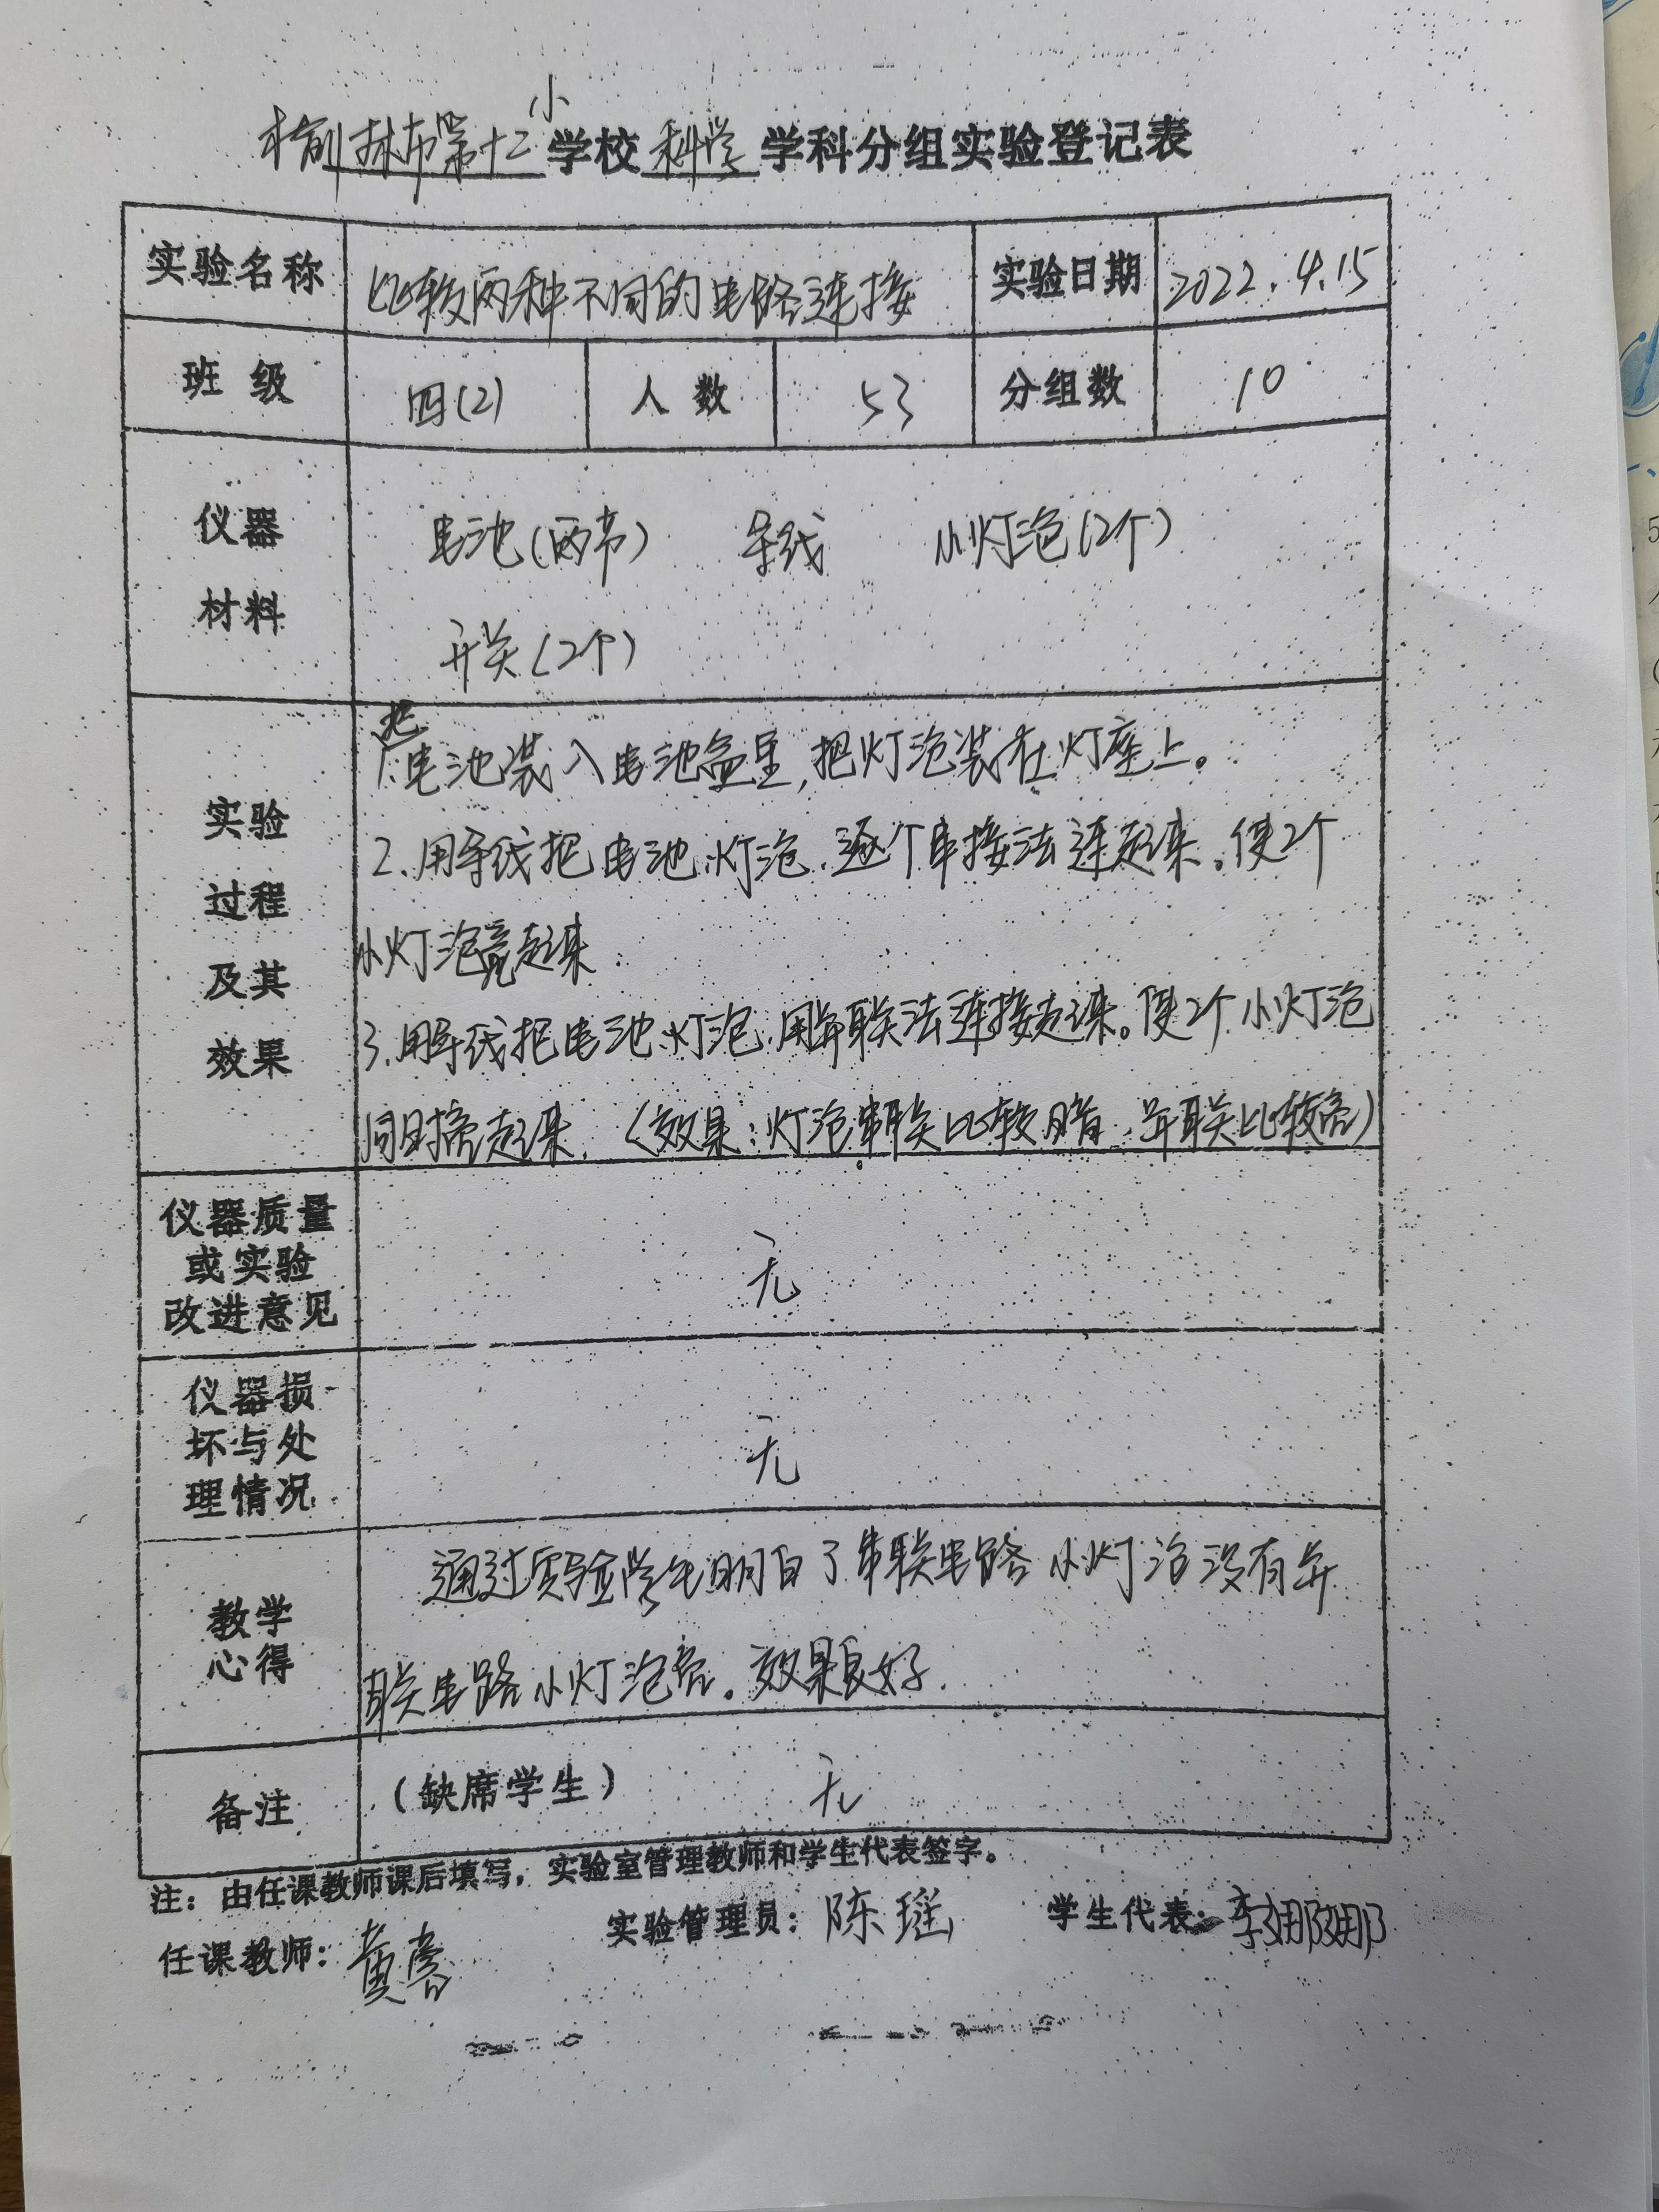 榆林市第十二小学校科学学科分组实验登记表
实验名称 比较两种不同的电路连接 实验日期 2022.4.15
班级 四(2) 人数 53 分组数 10
仪器材料
电池(两节) 导线 小灯泡(2个)
开关(2个)
实验过程及其效果
1.把电池装入电池盒里,把灯泡装在灯座上。
2.用导线把电池、灯泡、逐个串接法连起来。使2个
小灯泡亮起来.
3.用导线把电池、灯泡,用并联法连接起来。使2个小灯泡
同时亮起来. (效果:灯泡串联比较暗,并联比较亮)
仪器质量
或实验
改进意见
无
仪器损
坏与处
理情况
无
教学
心得
通过实验学生明白了串联电路小灯泡没有并
联电路小灯泡亮。效果良好.
备注 (缺席学生) 无
注:由任课教师课后填写,实验室管理教师和学生代表签字。
任课教师: 黄 实验管理员: 陈瑶 学生代表: 李娜娜